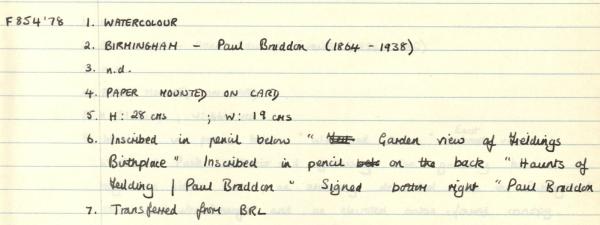 F854'78 1. WATERCOLOUR
2. BIRMINGHAM - Paul Braddon (1864 - 1938)
3. n.d.
4. PAPER MOUNTED ON CARD
5. H: 28 cms ; W: 19 cms
6. Inscribed in pencil below " Garden view of Fieldings
Birthplace" Inscribed in pencil on the back "Haunts of
Fielding / Paul Braddon" Signed bottom right "Paul Braddon
7. Transferred from BRL